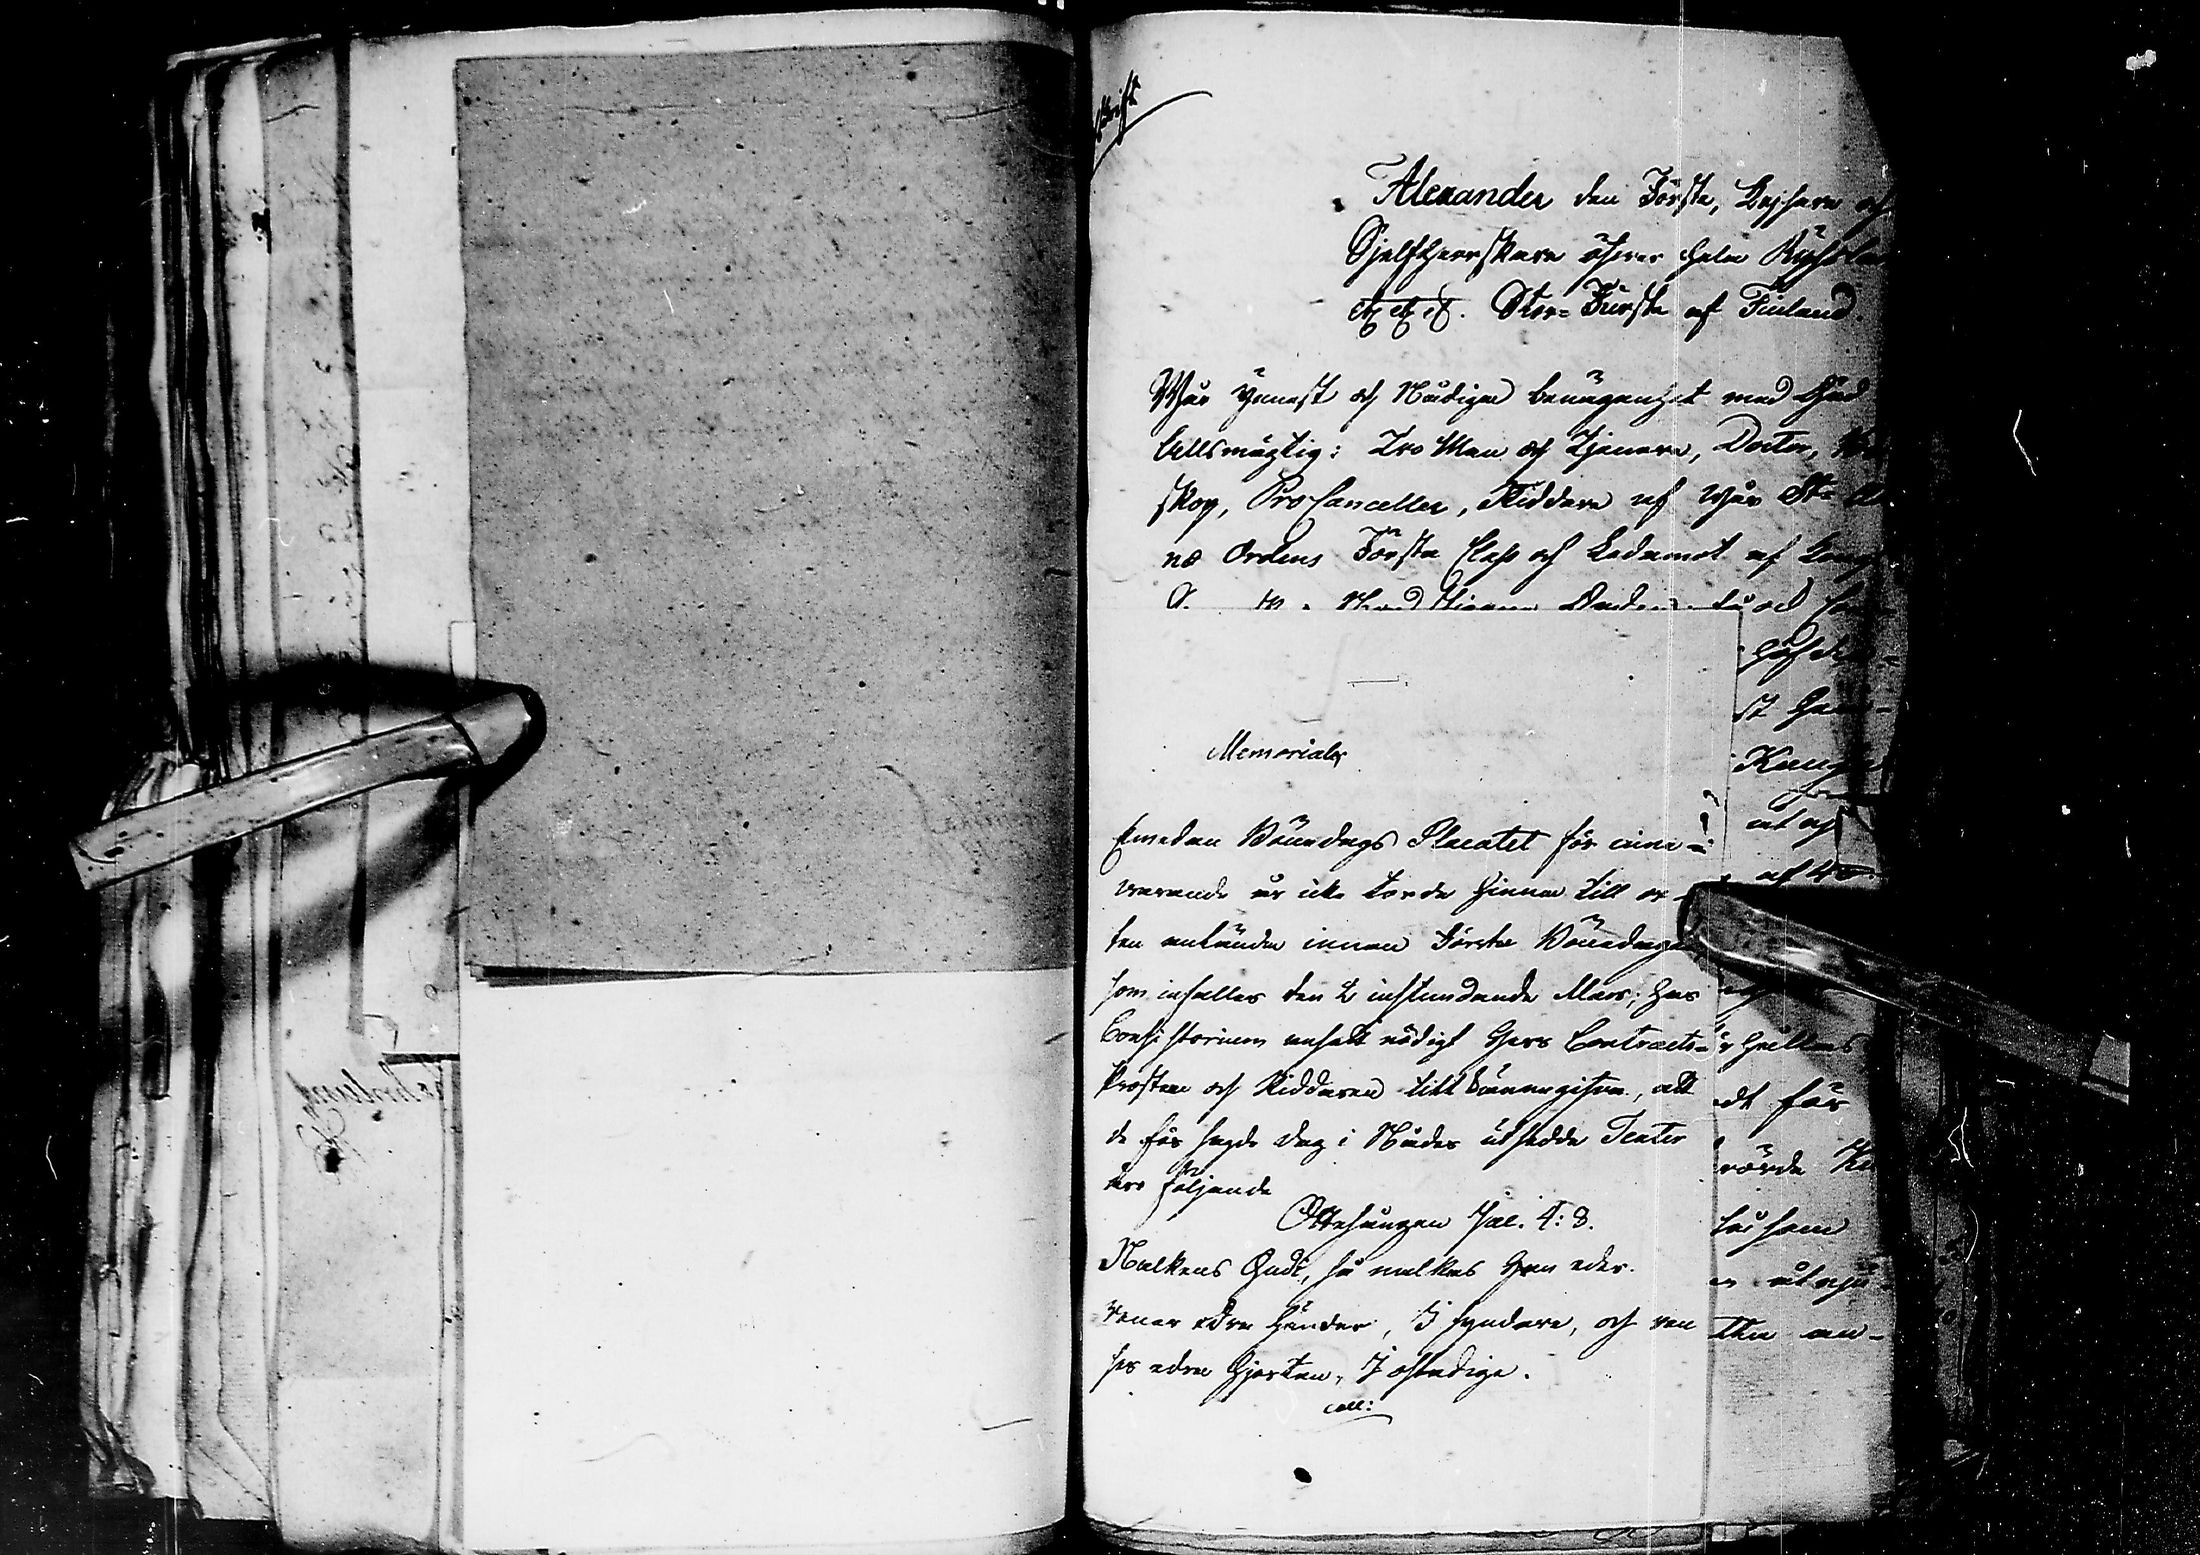 skrift
Alexander den Förste, Kejsare och
Sjelfherrskare öfwer hela Ryssland
etc. etc. etc. Stor-Furste af Finland.
Wår ynnest och Nådiga benägenhet med Gud
Allsmägtig: Tro Man och Tjenare, Doctor, Bi
skop, ProCanceller, Riddare af wår St. An
næ Ordens Första Class och Ledamot af
Memorial
Emedan Bönedags Placatet för inne-
warande år icke torde hinna till or-
ten anlända innan Första Bönedagen
som infaller den 2 instundande Mars; har
Consistorium ansett nödigt Herr Contracts-
Prosten och Riddaren tillkännagifva, att
de för sagde dag i Nåder utsedde Texter
äro följande
Ottesången Jac. 4: 8.
Nalkens Gudi, så nalkas Han eder.
renar edra händer, I syndare, och ren
ser edra hjertan, I ostadige.
coll:
Kunga
och
r hvilkas
dt för
rörde
såsom